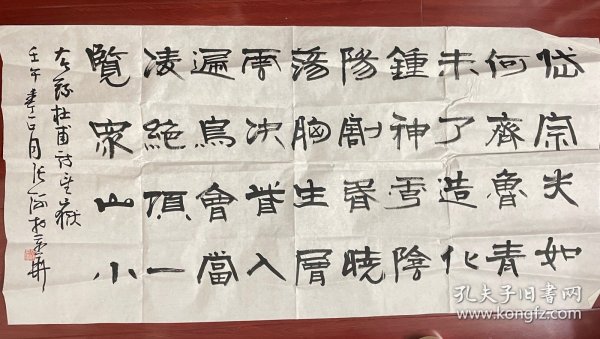 岱宗夫如
何齊魯青
未了造化
鍾神秀陰
陽割昏曉
蕩胸生層
雲決眥入
歸鳥會當
凌絕頂一
覽眾山小
右錄杜甫詩望嶽
壬午春月
孔夫子旧书网
www.kongfz.com